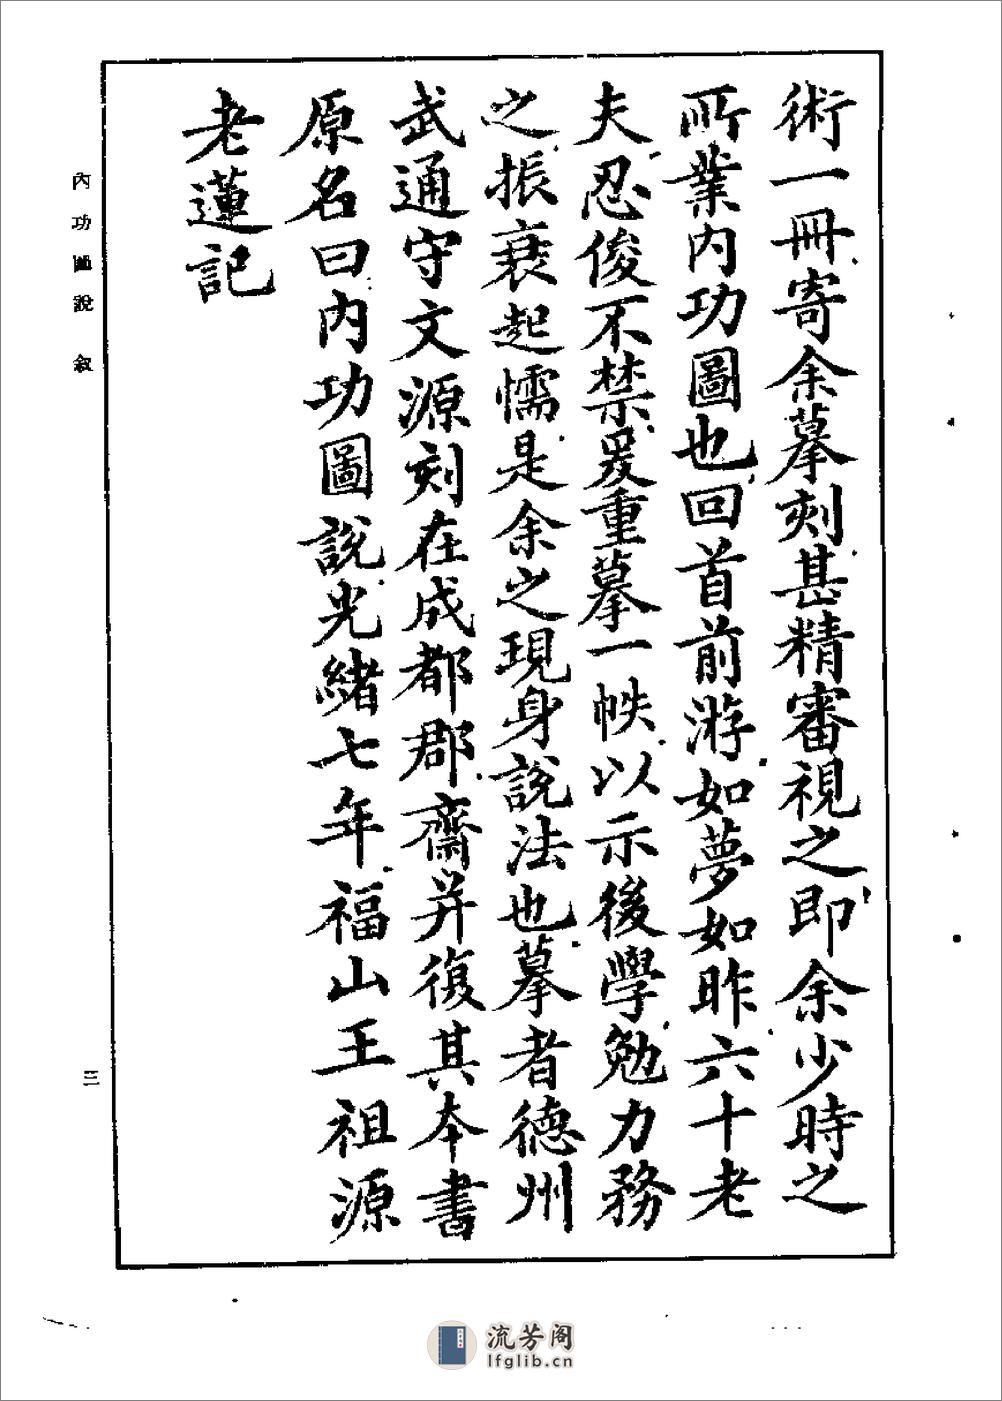 術一冊寄余摹刻甚精審視之即余少時之
所業内功圖也回首前游如夢如昨六十老
夫忍俊不禁爰重摹一帙以示後學勉力務
之振衰起懦是余之現身說法也摹者德州
武通守文源刻在成都郡齋并復其本書
原名曰内功圖說光緒七年福山王祖源
老蓮記
內功圖說 敘
三
流芳阁
lfglib.cn